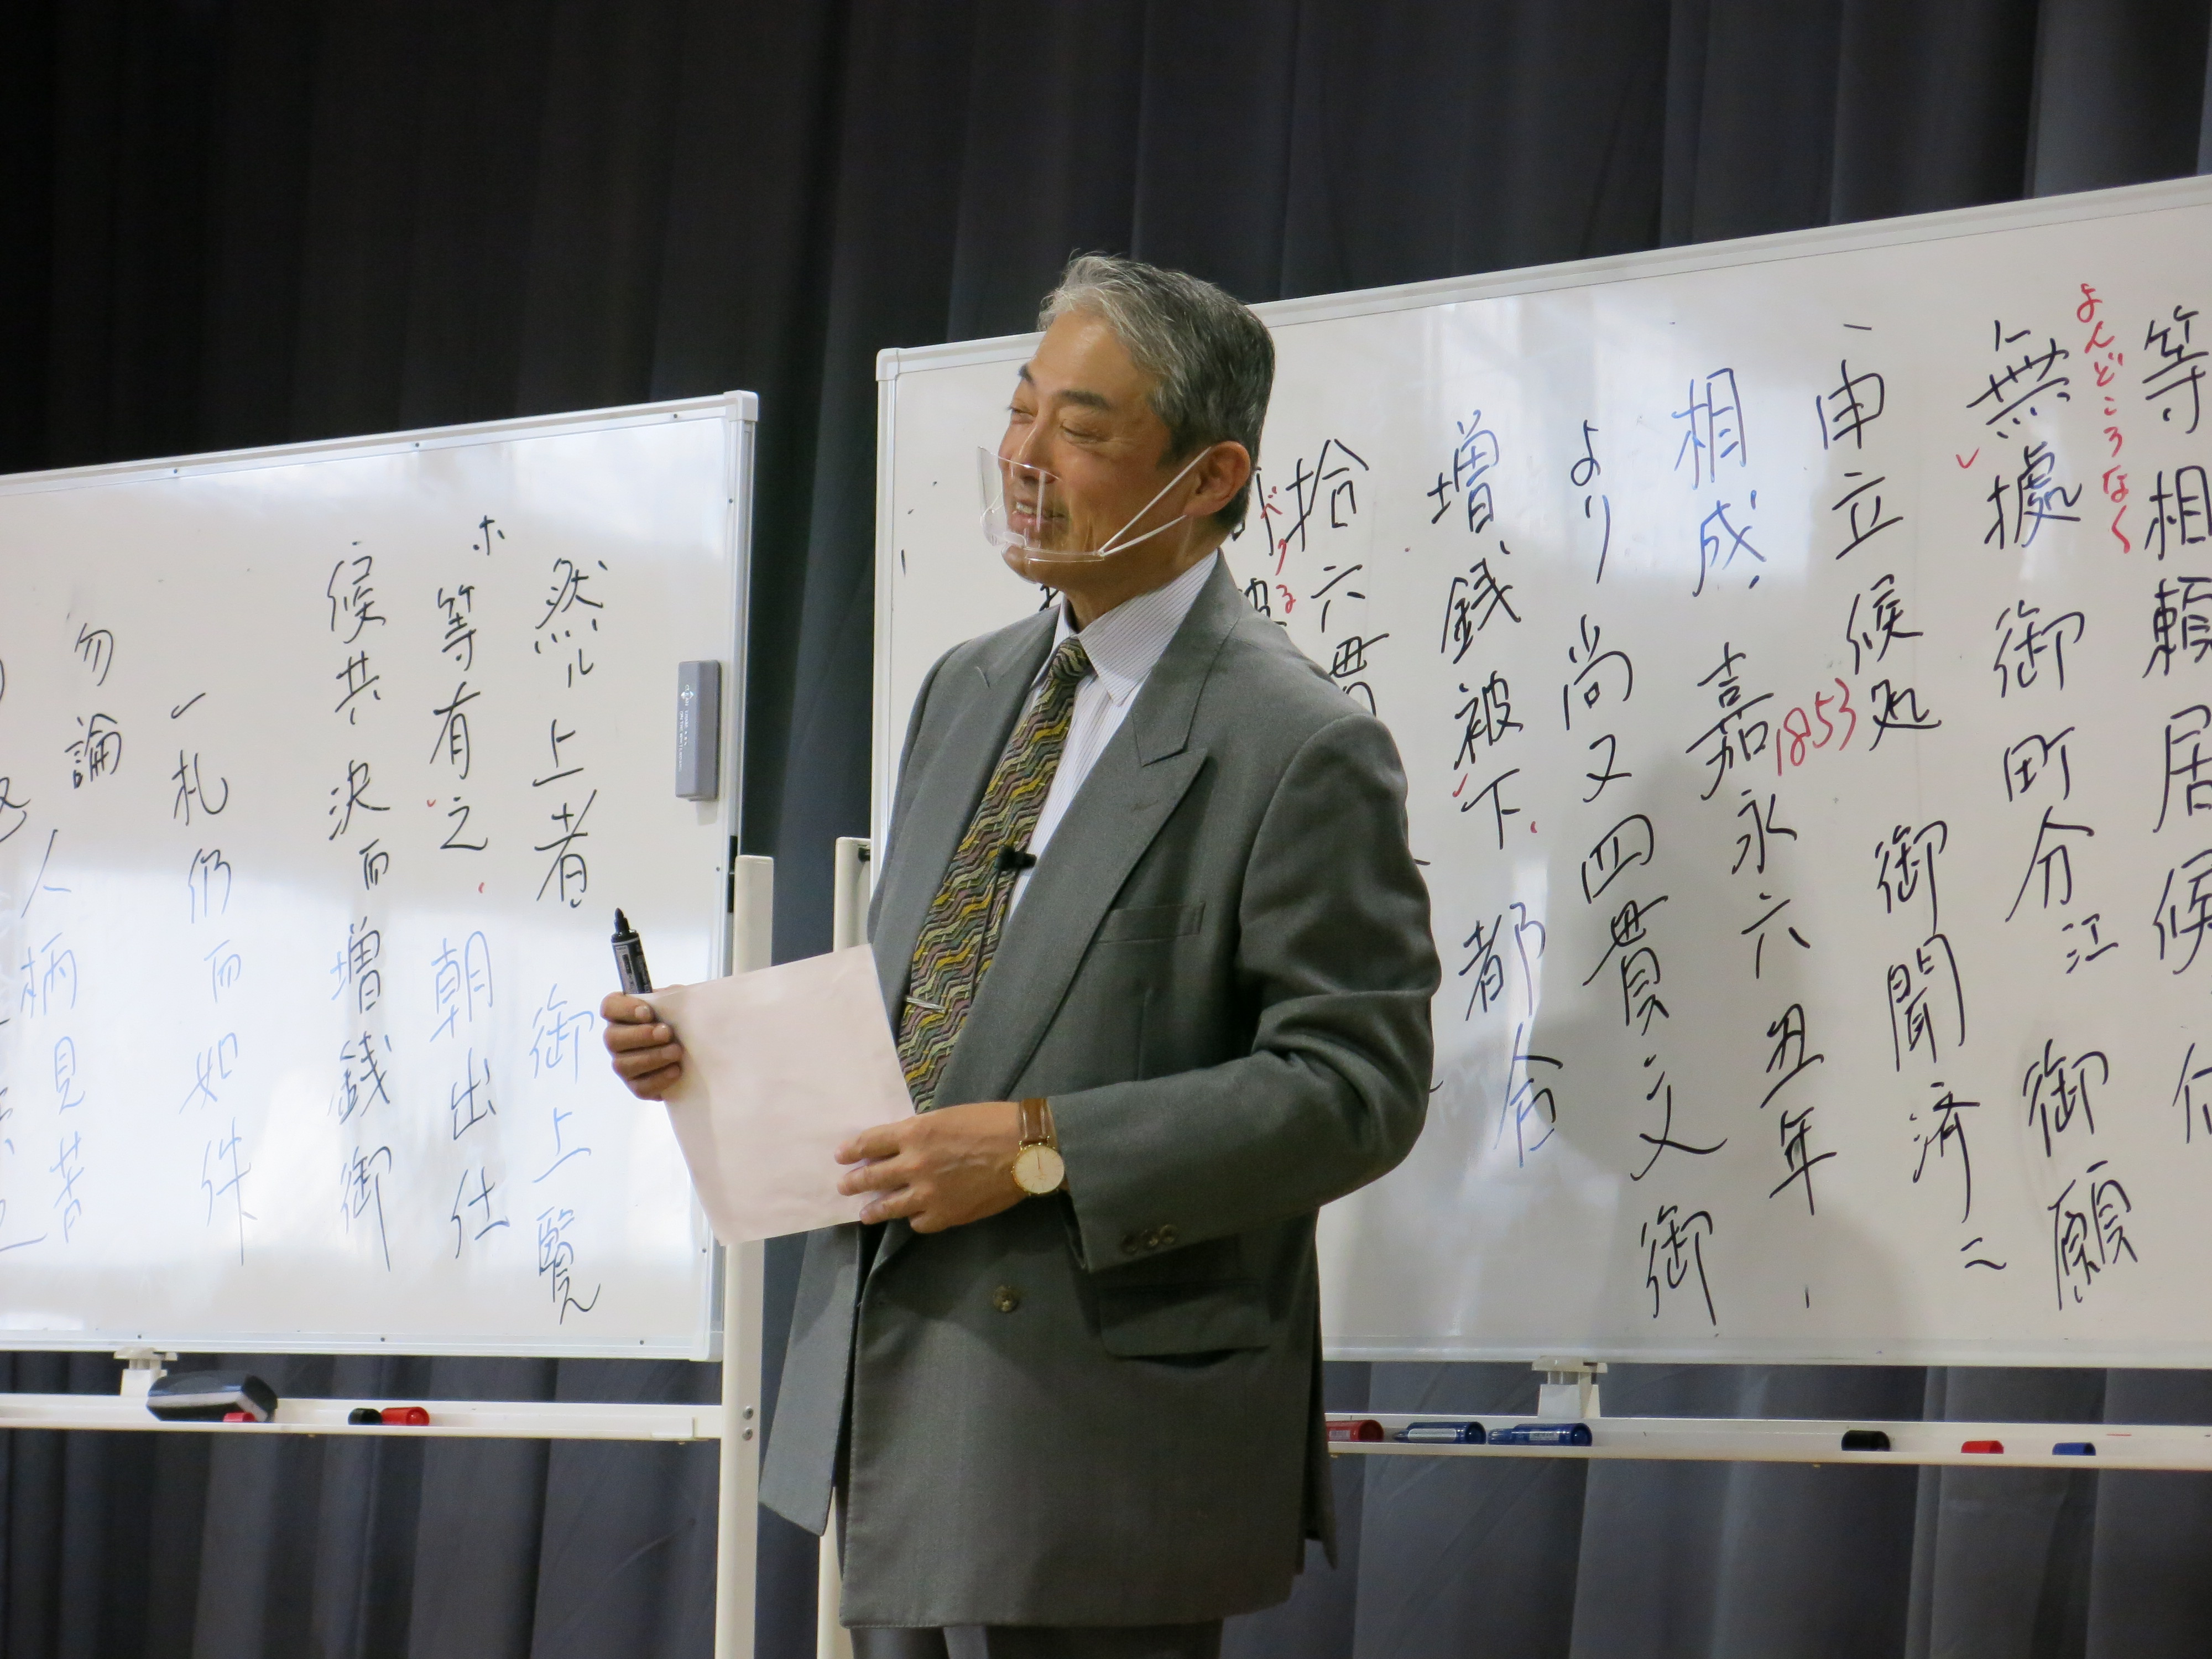 等相頼居候
よんどころなく
無據御町分江御願
申立候処御聞済ニ
1853
相成、嘉永六丑年
より尚又四貫文御
増銭被下、都合
拾六貫
然ル上者御上覧
ホ
等有之、朝出仕
候共決而増銭御
一札仍而如件
勿論
人柄見苦